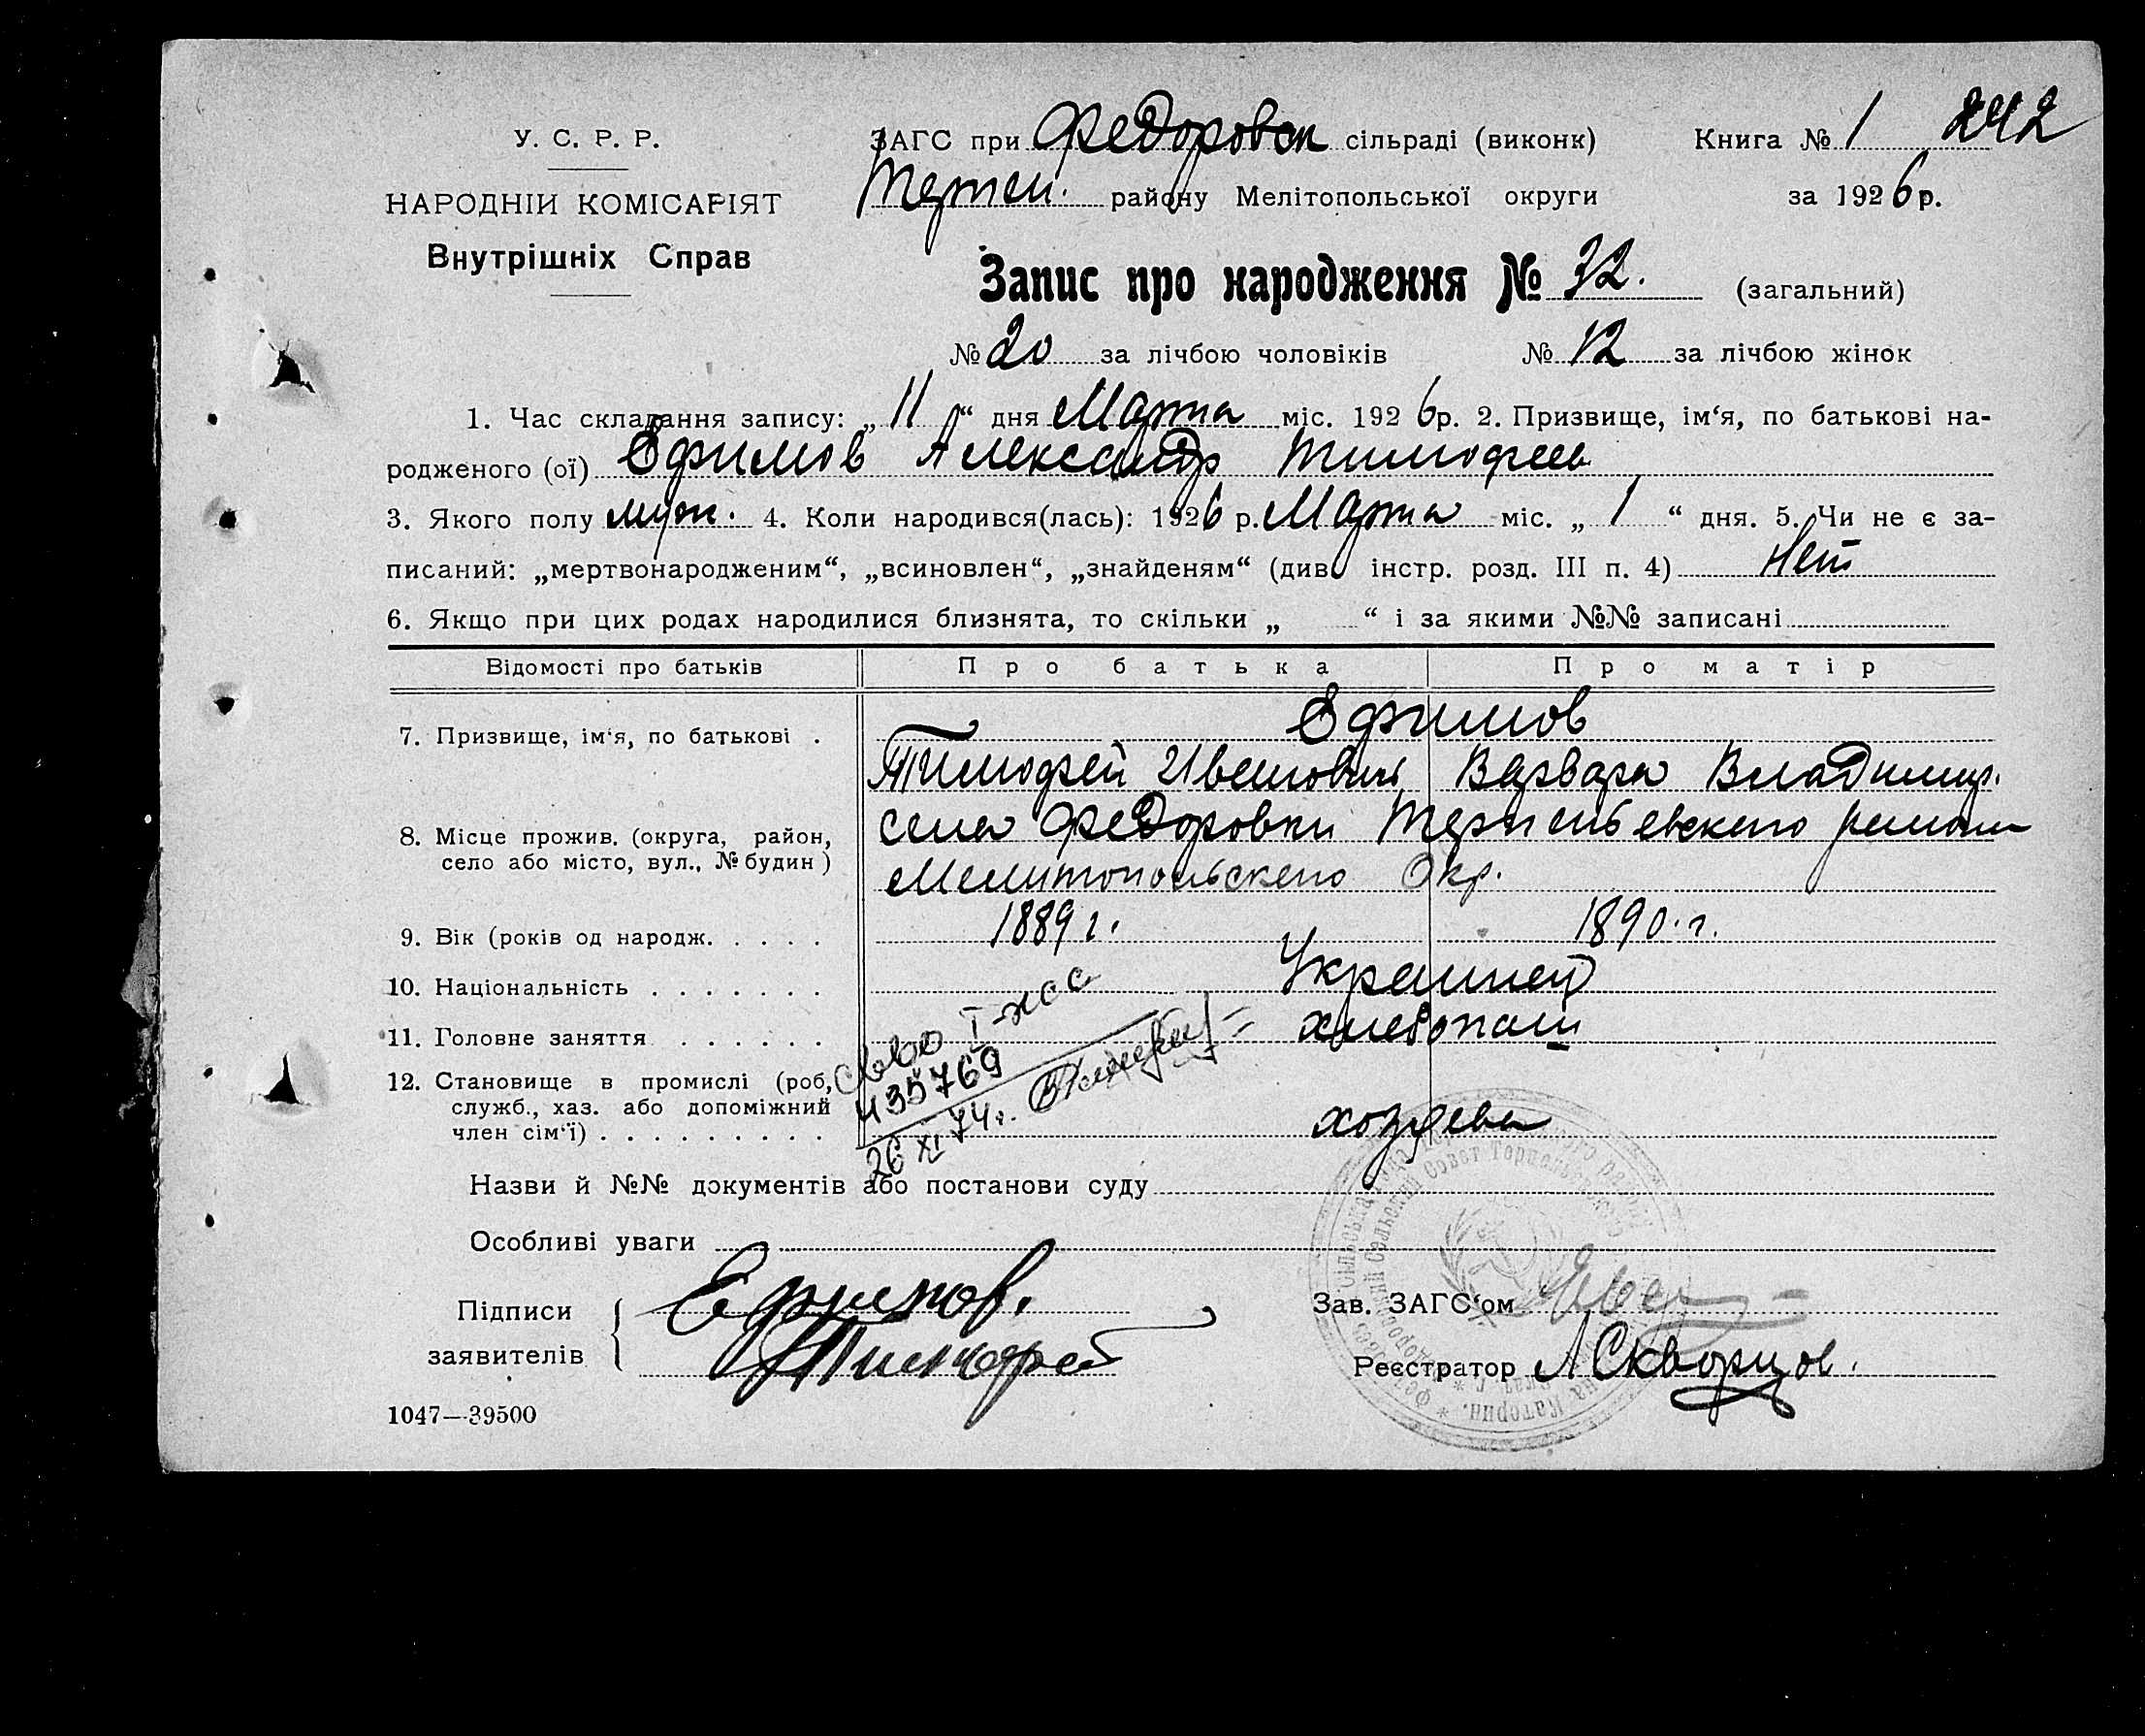 У. С. Р. Р.
НАРОДНІЙ КОМІСАРІЯТ
Внутрішніх Справ
ЗАГС при Федоровск сільраді (виконк) Книга № 1 242
району Мелітопольської округи за 1926 р.
Запис про народження № 32. (загальний)
№ 20 за лічбою чоловіків № 12 за лічбою жінок
1. Час складання запису: „11“ дня Марта міс. 1926 р. 2. Призвище, ім‘я, по батькові на-
родженого (ої) Ефимов Александр Тимофеев
3. Якого полу муж. 4. Коли народився(лась): 1926 р. Марта міс. „1“ дня. 5. Чи не є за-
писаний: „мертвонародженим“, „всиновлен“, „знайденям“ (див. інстр. розд. III п. 4) Нет
6. Якщо при цих родах народилися близнята, то скільки „ “ і за якими №№ записані
Відомості про батьків Про батька Про матір
7. Призвище, ім‘я, по батькові . Ефимов
Тимофей Иванович Варвара Владимир.
8. Місце прожив. (округа, район, село Федоровки Терпеньевского района
село або місто, вул., № будин) Мелитопольского Окр.
9. Вік (років од народж. . . . . 1889 г. 1890. г.
10. Національність . . . . . . . Украинец
11. Головне заняття . . . . . . хлебопаш
12. Становище в промислі (роб,
служб., хаз. або допоміжний
член сім‘ї) . . . . . . . . . хозяева
435769
26 XI 74г.
Назви й №№ документів або постанови суду
Особливі уваги
Підписи Ефимов.
заявителів Тимофей
Зав. ЗАГС‘ом
Реєстратор Л Скворцов.
1047—39500